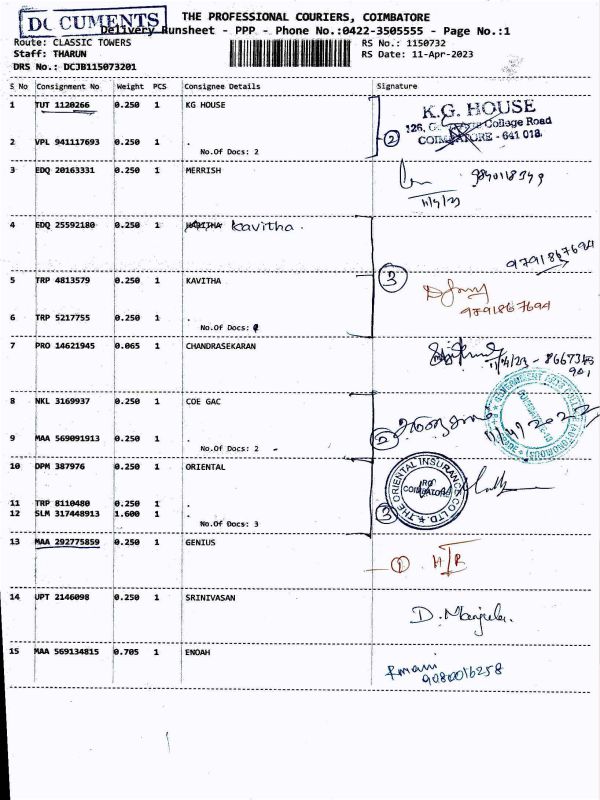 DOCUMENTS
THE PROFESSIONAL COURIERS, COIMBATORE
Delivery Runsheet - PPP - Phone No.:0422-3505555 - Page No.:1
Route: CLASSIC TOWERS
RS No.: 1150732
Staff: THARUN
RS Date: 11-Apr-2023
DRS No.: DCJB115073201
S No Consignment No Weight PCS Consignee Details Signature
1 TUT 1120266 0.250 1 KG HOUSE
K.G. HOUSE
College Road
COIMBATORE - 641 018.
2 VPL 941117693 0.250 1 .
2
No.Of Docs: 2
3 EDQ 20163331 0.250 1 MERRISH
11/4/23
4 EDQ 25592180 0.250 1 Kavitha.
9791867694
3
5 TRP 4813579 0.250 1 KAVITHA
9791867694
6 TRP 5217755 0.250 1 .
No.Of Docs:
7 PRO 14621945 0.065 1 CHANDRASEKARAN
8 NKL 3169937 0.250 1 COE GAC
9 MAA 569091913 0.250 1 .
2
No.Of Docs: 2
10 DPM 387976 0.250 1 ORIENTAL
THE ORIENTAL INSURANCE CO LTD.
RO
COIMBATORE
11 TRP 8110480 0.250 1 .
12 SLM 317448913 1.600 1 .
3
No.Of Docs: 3
13 MAA 292775859 0.250 1 GENIUS
1
14 UPT 2146098 0.250 1 SRINIVASAN
D. Manjula.
15 MAA 569134815 0.705 1 ENOAH
9080016258